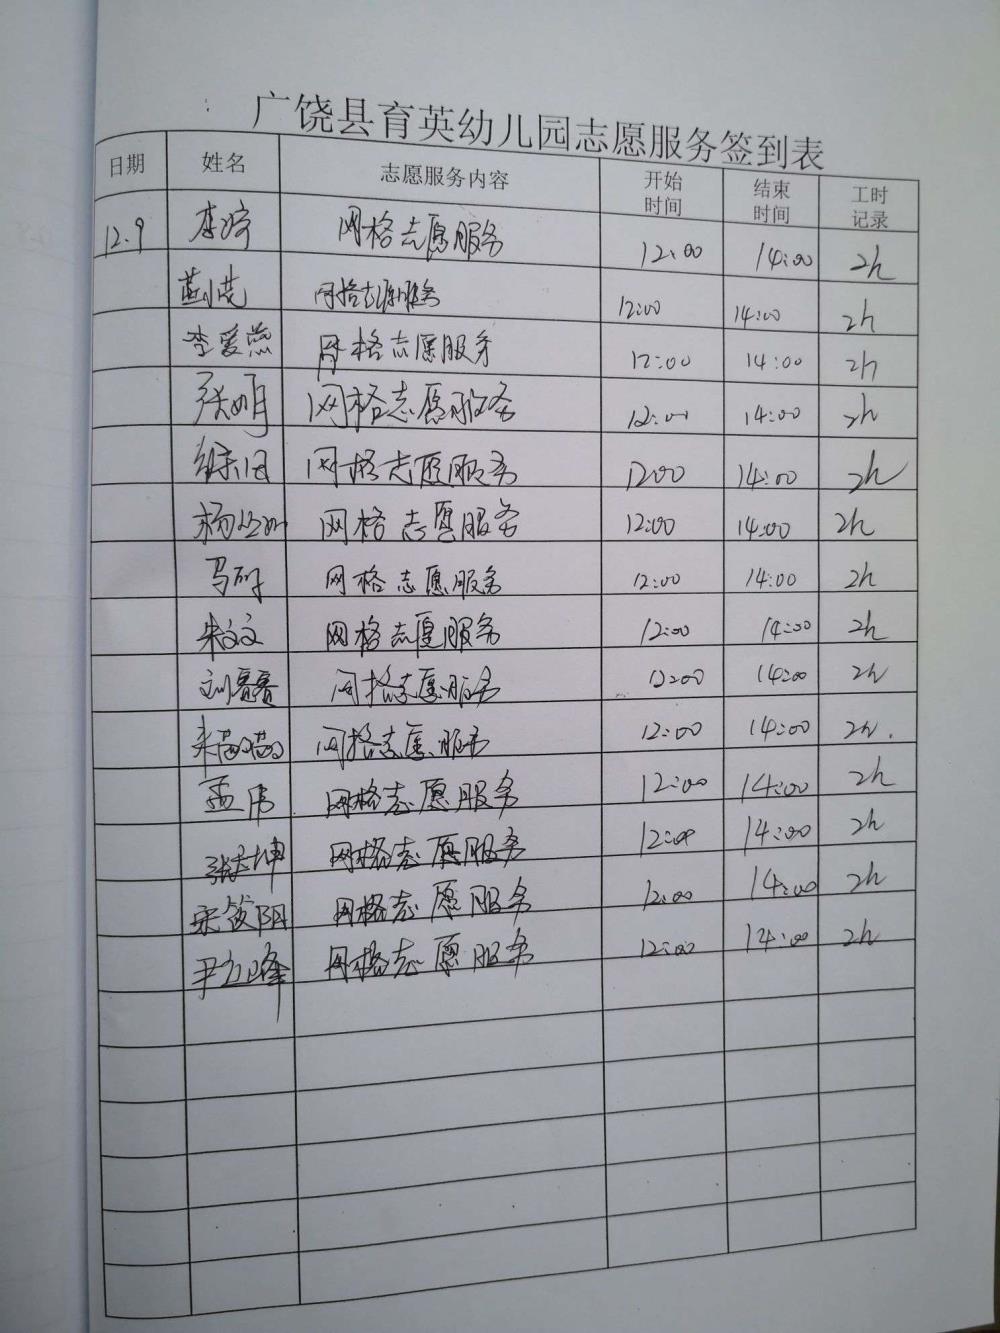 广饶县育英幼儿园志愿服务签到表
日期 姓名 志愿服务内容 开始时间 结束时间 工时记录
12.9 网格志愿服务 12:00 14:00 2h
网格志愿服务 12:00 14:00 2h
李爱燕 网格志愿服务 12:00 14:00 2h
张明月 网格志愿服务 12:00 14:00 2h
网格志愿服务 1200 14:00 2h
网格志愿服务 12:00 14:00 2h
网格志愿服务 12:00 14:00 2h
朱文文 网格志愿服务 12:00 14:00 2h
刘赛赛 网格志愿服务 12:00 14:00 2h
网格志愿服务 12:00 14:00 2h.
孟伟 网格志愿服务 12:00 14:00 2h
网格志愿服务 12:00 14:00 2h
宋筱阴 网格志愿服务 12:00 14:00 2h
网格志愿服务 12:00 14:00 2h